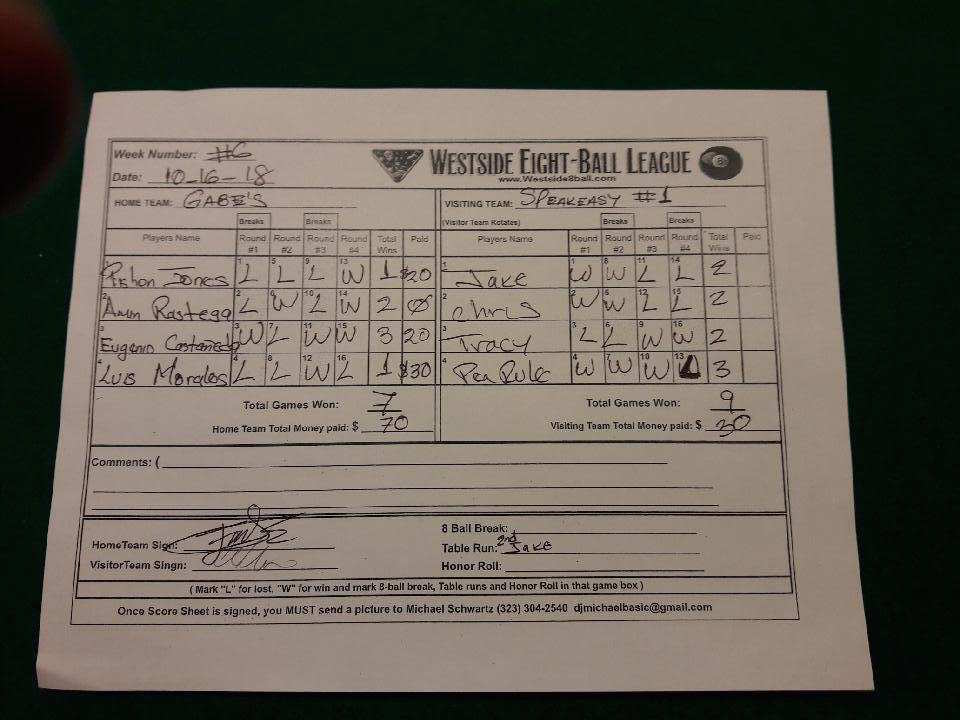 Week Number: #6
WESTSIDE EIGHT-BALL LEAGUE
www.Westside8ball.com
Date: 10-16-18
HOME TEAM: GABE'S VISITING TEAM: SPEAKEASY #1
Breaks Breaks (Visitor Team Rotates) Breaks Breaks
Players Name Round #1 Round #2 Round #3 Round #4 Total Wins Paid Players Name Round #1 Round #2 Round #3 Round #4 Total Wins Paid
1 Jones 1 L 5 L 9 L 13 W 1 $20 1 Jake 1 W 8 W 11 L 14 L 2
2 Rastegar 2 L 6 W 10 L 14 W 2 0 2 Chris 2 W 5 W 12 L 15 L 2
3 Eugenio Castaneda 3 W 7 L 11 W 15 W 3 20 3 Tracy 3 L 6 L 9 W 16 W 2
4 Luis Morales 4 L 8 L 12 W 16 L 1 $30 4 4 W 7 W 10 W 13 L 3
Total Games Won: 7 Total Games Won: 9
Home Team Total Money paid: $ 70 Visiting Team Total Money paid: $ 30
Comments: (
8 Ball Break:
HomeTeam Sign: Table Run: 2nd Jake
VisitorTeam Singn: Honor Roll:
( Mark "L" for lost, "W" for win and mark 8-ball break, Table runs and Honor Roll in that game box )
Once Score Sheet is signed, you MUST send a picture to Michael Schwartz (323) 304-2540 djmichaelbasic@gmail.com